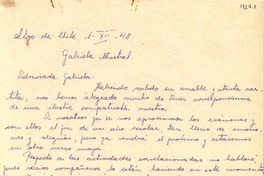 Stgo de Chile 1-XII-48.
Gabriela Mistral
Admirada Gabriela
Habiendo recibido su amable y atenta car-
tita, nos hemos alegrado mucho de tener correspondencia
de una ilustre compatriota nuestra.
A nosotros ya se nos aproximan los exámenes y
con ellos el fin de un año escolar, tan lleno de emocio-
nes y alegrías, pero ya vendrá el próximo y estaremos
en otro curso más arriba.
Respecto a las actividades no hablaré,
pues varios compañeros lo están haciendo en este momento